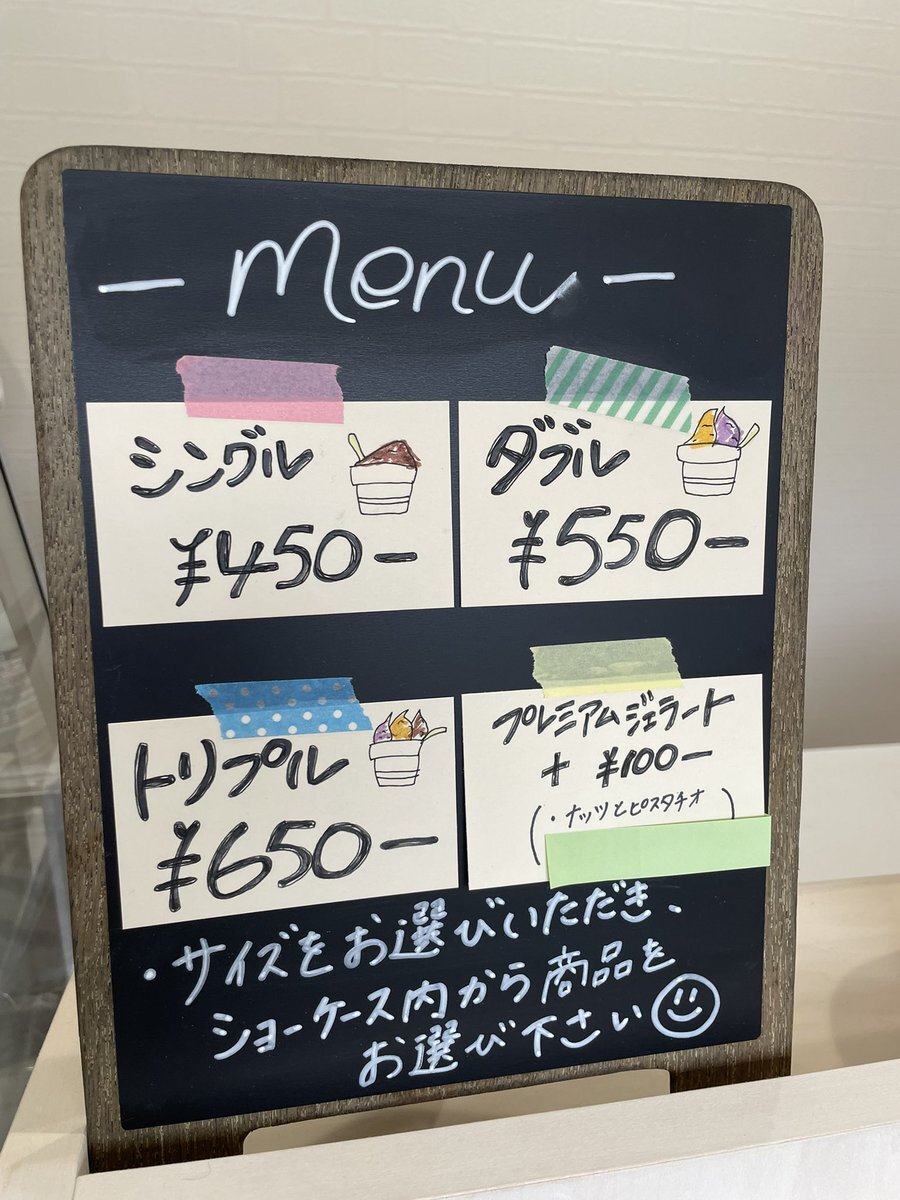 — Menu —
シングル
¥450—
ダブル
¥550—
トリプル
¥650—
プレミアムジェラート
+ ¥100—
(・ナッツとピスタチオ)
・サイズをお選びいただき、
ショーケース内から商品を
お選び下さい